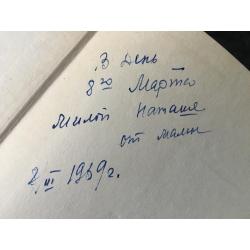 В День
8го Марта
милой Наташе
от мамы
8/III 1989г.